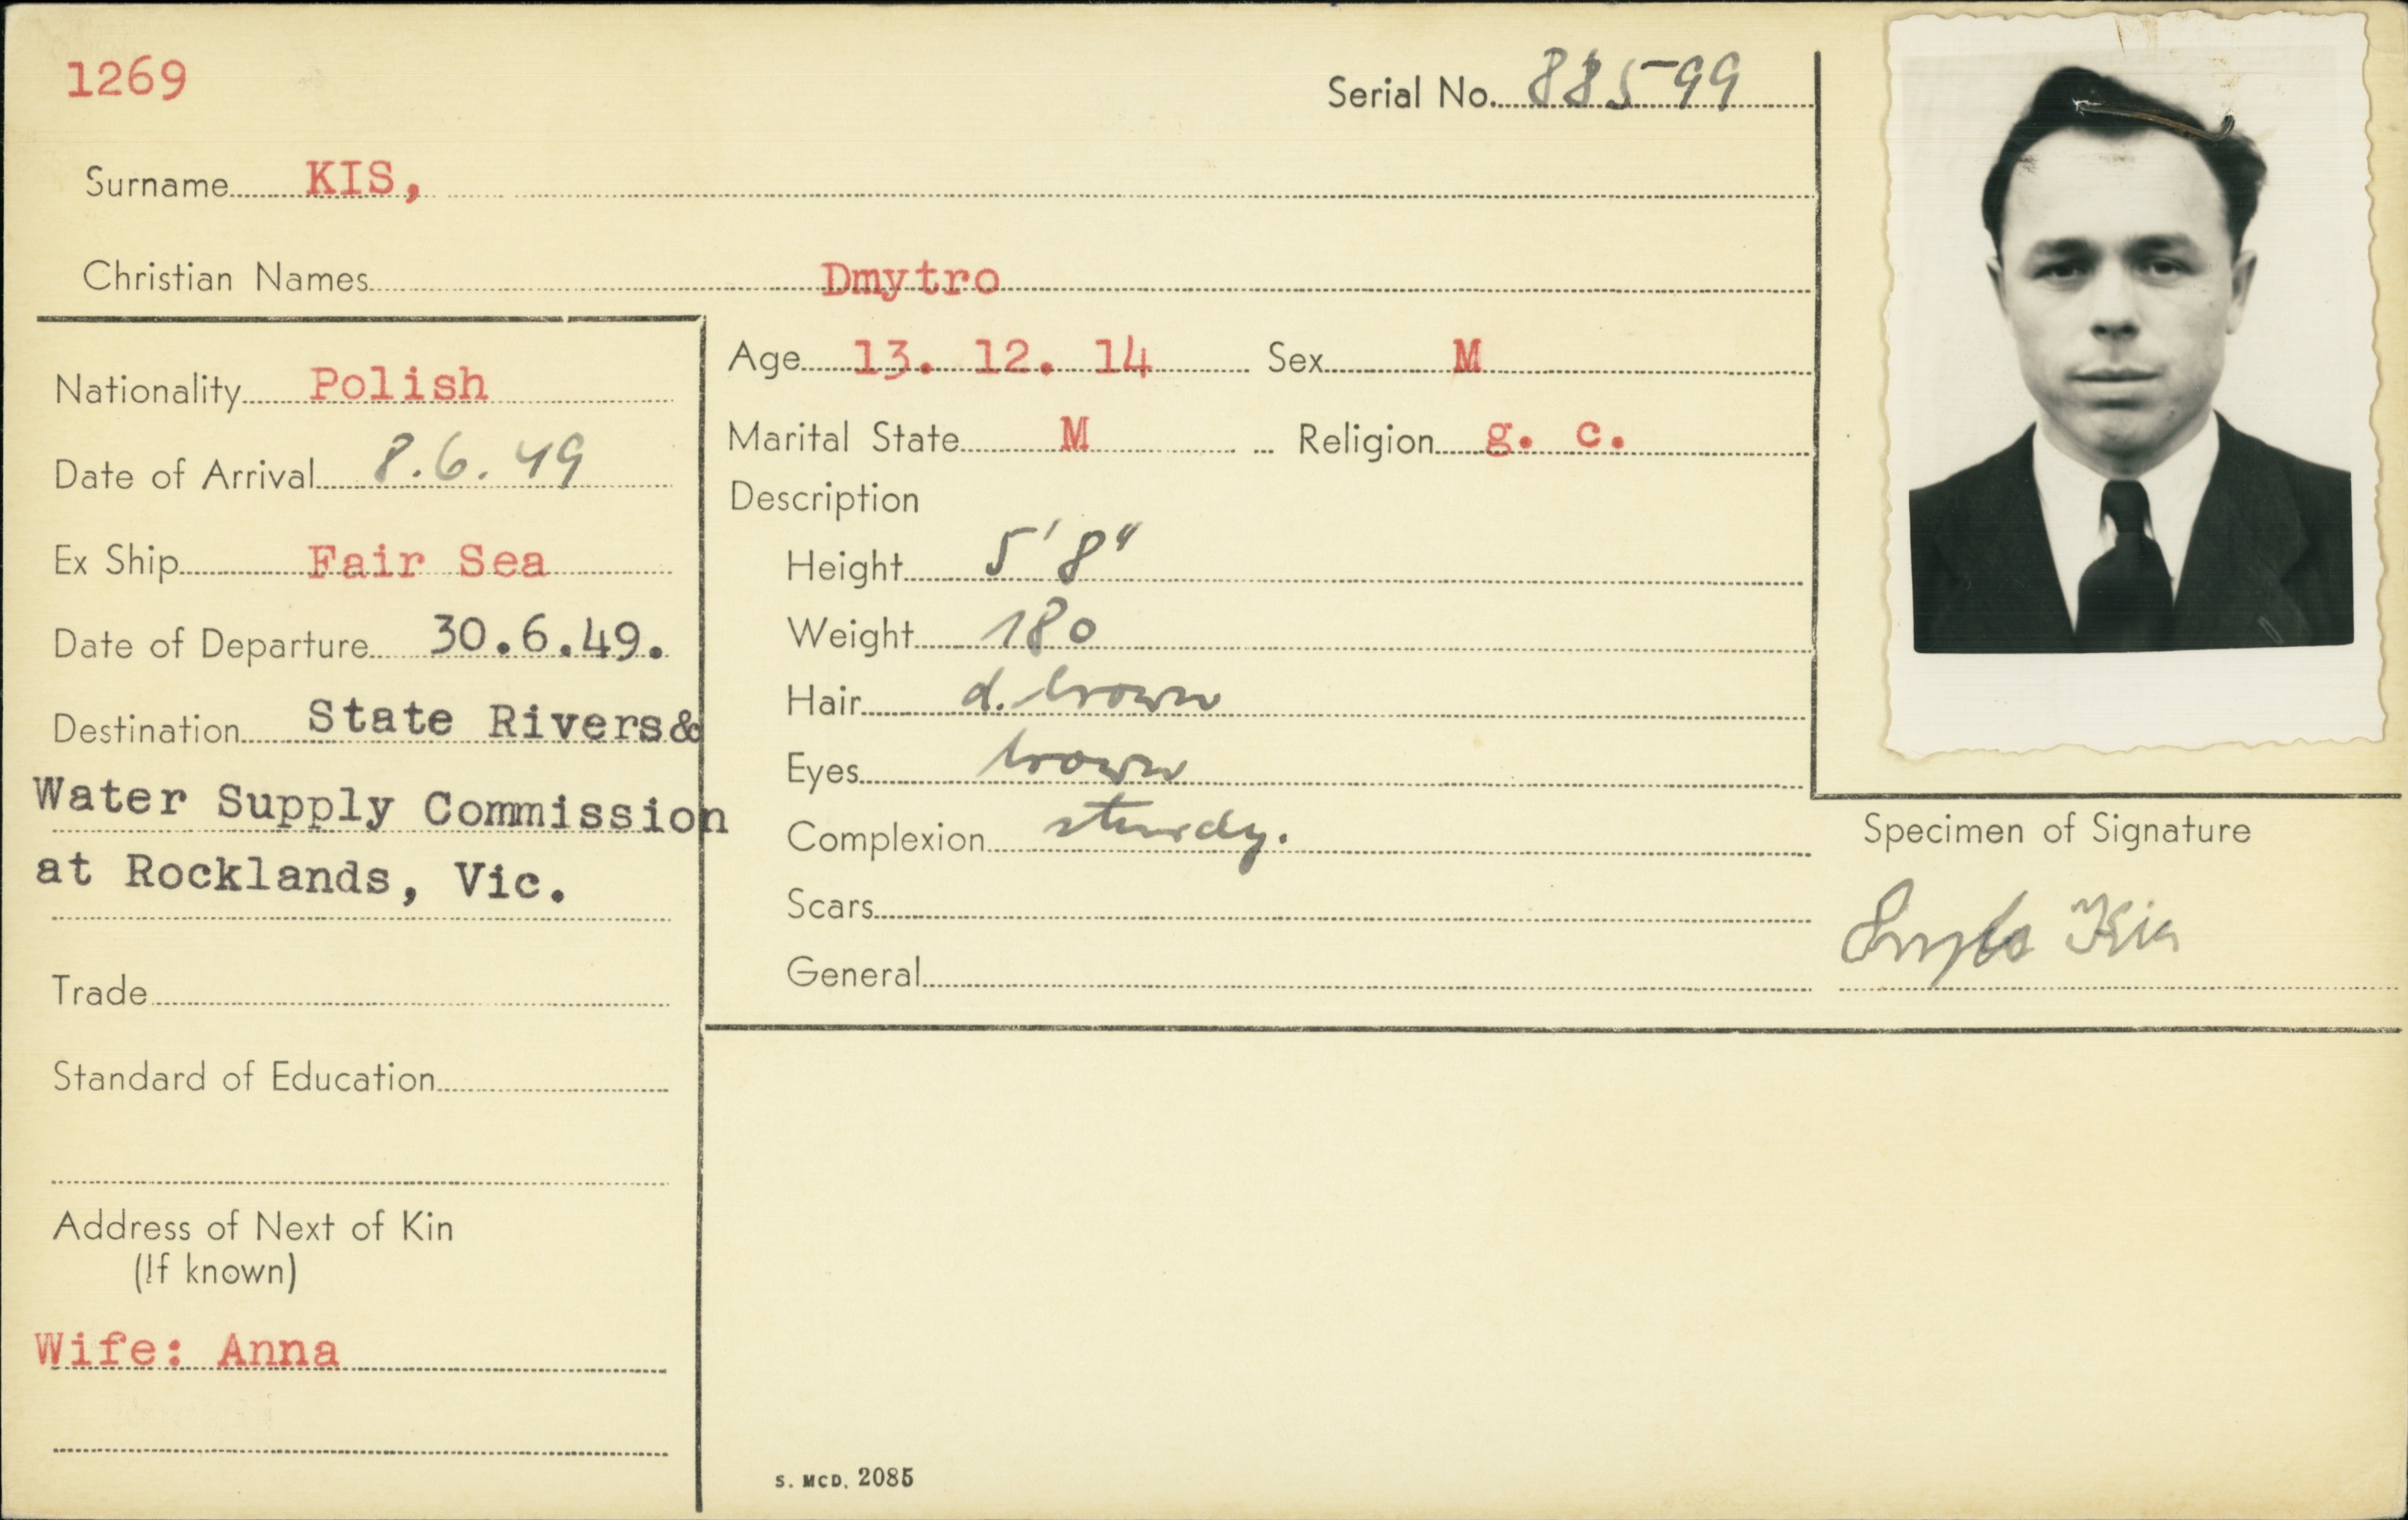 1269
Serial No. 88599
Surname KIS,
Christian Names Dmytro
Nationality Polish
Date of Arrival 8.6.49
Ex Ship Fair Sea
Date of Departure 30.6.49.
Destination State Rivers&
Water Supply Commission
at Rocklands, Vic.
Trade
Standard of Education
Address of Next of Kin
(If known)
Wife: Anna
Age 13. 12. 14 Sex M
Marital State M Religion g. c.
Description
Height 5'8"
Weight 180
Hair d. brown
Eyes brown
Complexion sturdy.
Scars
General
Specimen of Signature
Dmytro Kis
S. MCD. 2085